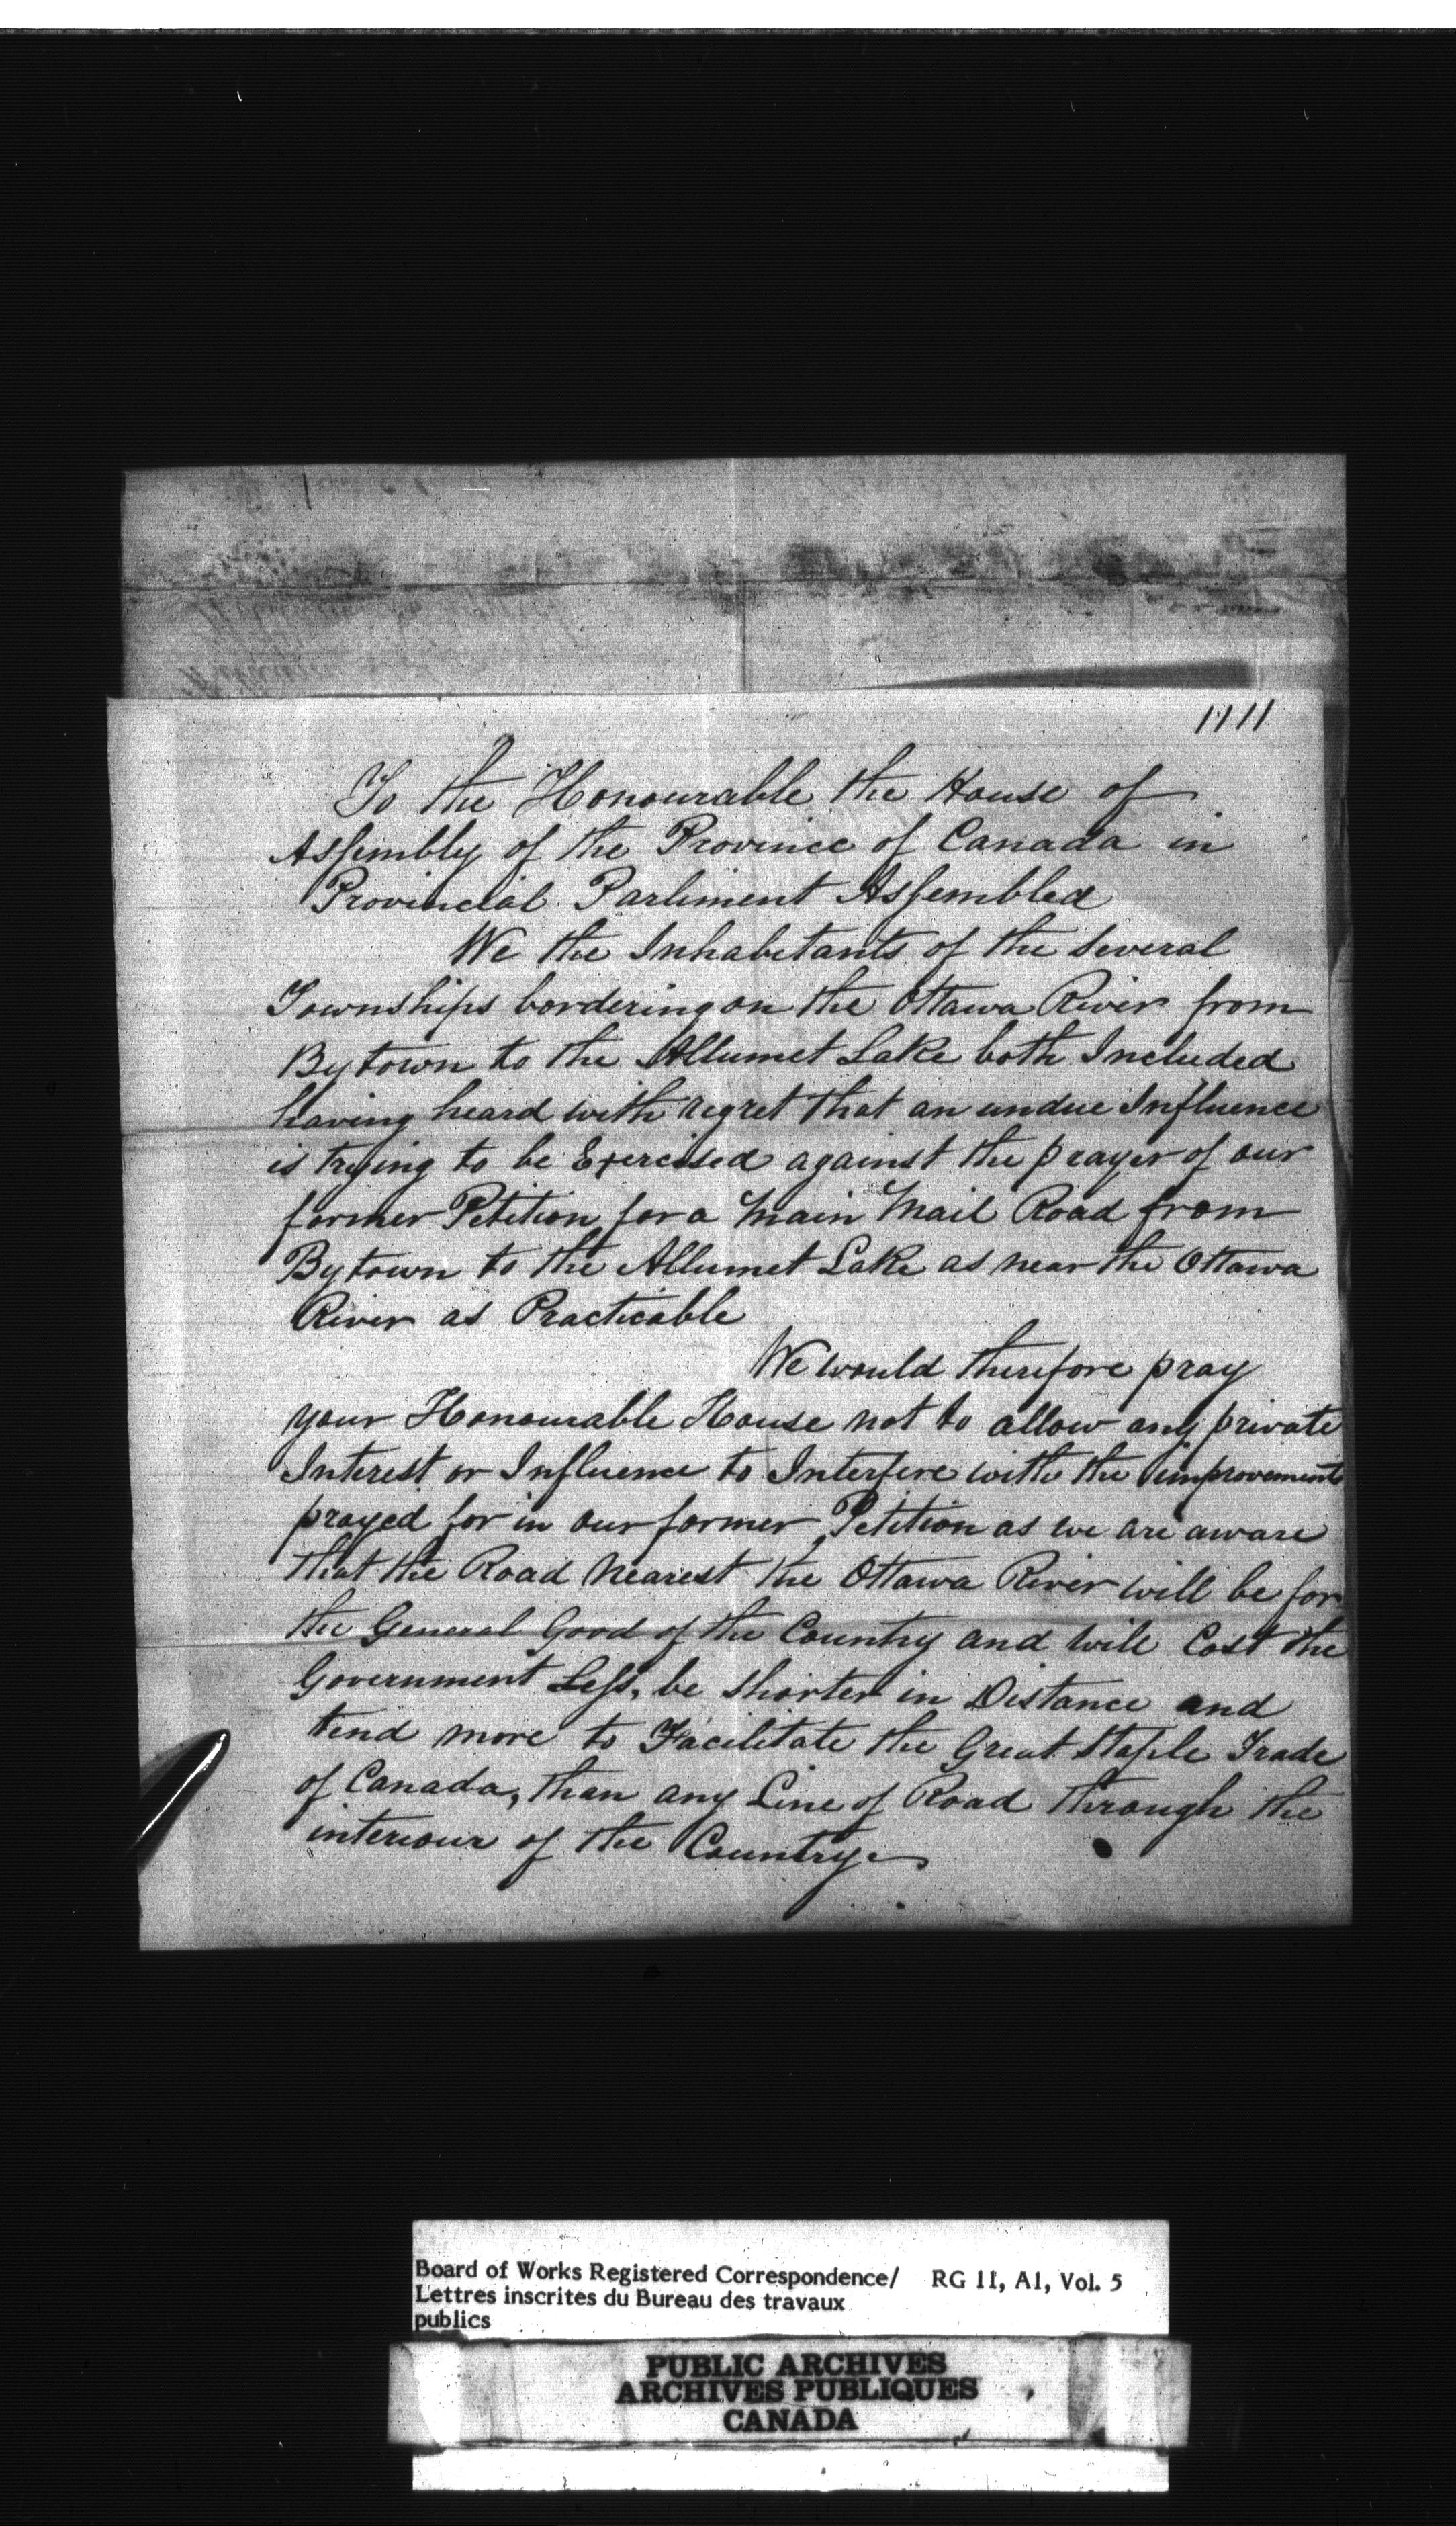 1111
To the Honourable the House of
Assembly of the Province of Canada in
Provincial Parliment Assembled
We the Inhabitants of the several
Townships bordering on the Ottawa River from
Bytown to the Allumet Lake both Included
having heard with regret that an undue Influence
is trying to be Exercised against the prayer of our
former Petition for a Main Mail Road from
Bytown to the Allumet Lake as near the Ottawa
River as Practicable
We would therefore pray
your Honourable House not to allow any private
Interest or Influence to Interfere with the improvement
prayed for in our former Petition as we are aware
that the Road Nearest the Ottawa River will be for
the General Good of the Country and will Cost the
Government Less, be shorter in Distance and
tend more to Facilitate the Great Staple Trade
of Canada, than any Line of Road through the
interiour of the Country
Board of Works Registered Correspondence/ RG 11, A1, Vol. 5
Lettres inscrites du Bureau des travaux
publics
PUBLIC ARCHIVES
ARCHIVES PUBLIQUES
CANADA